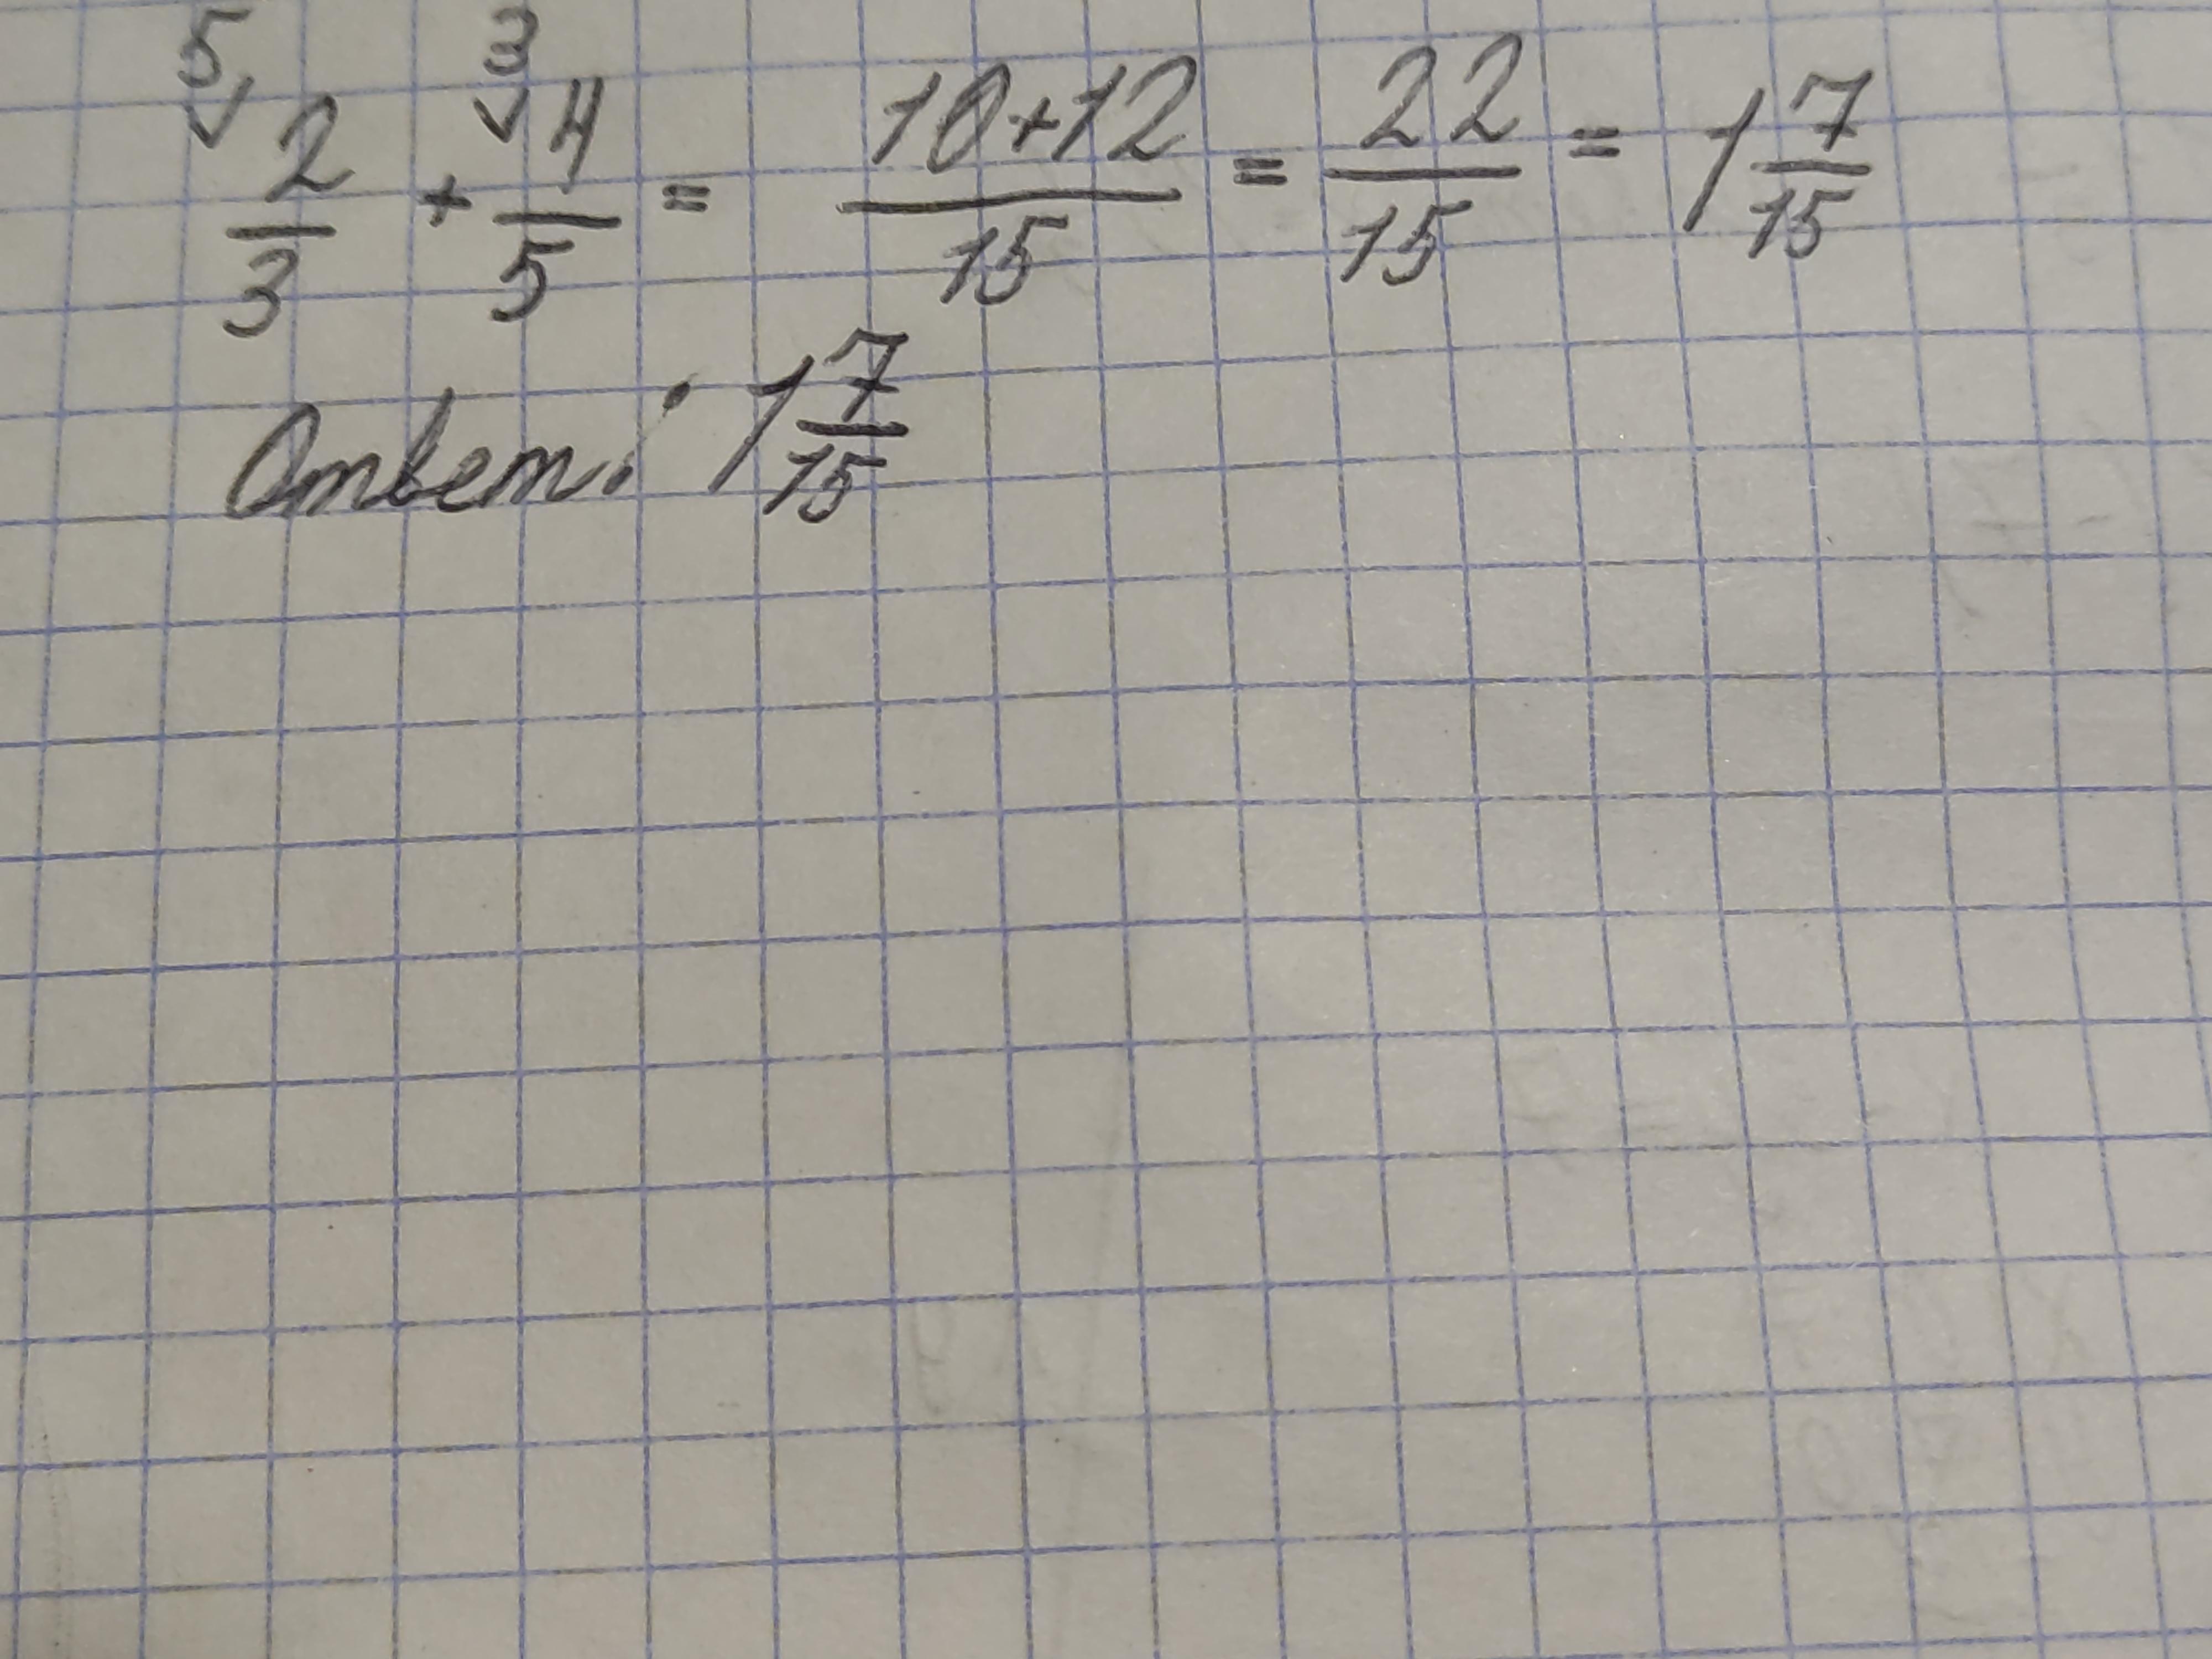 5 3
2/3 + 4/5 = 10+12/15 = 22/15 = 1 7/15
Ответ: 1 7/15